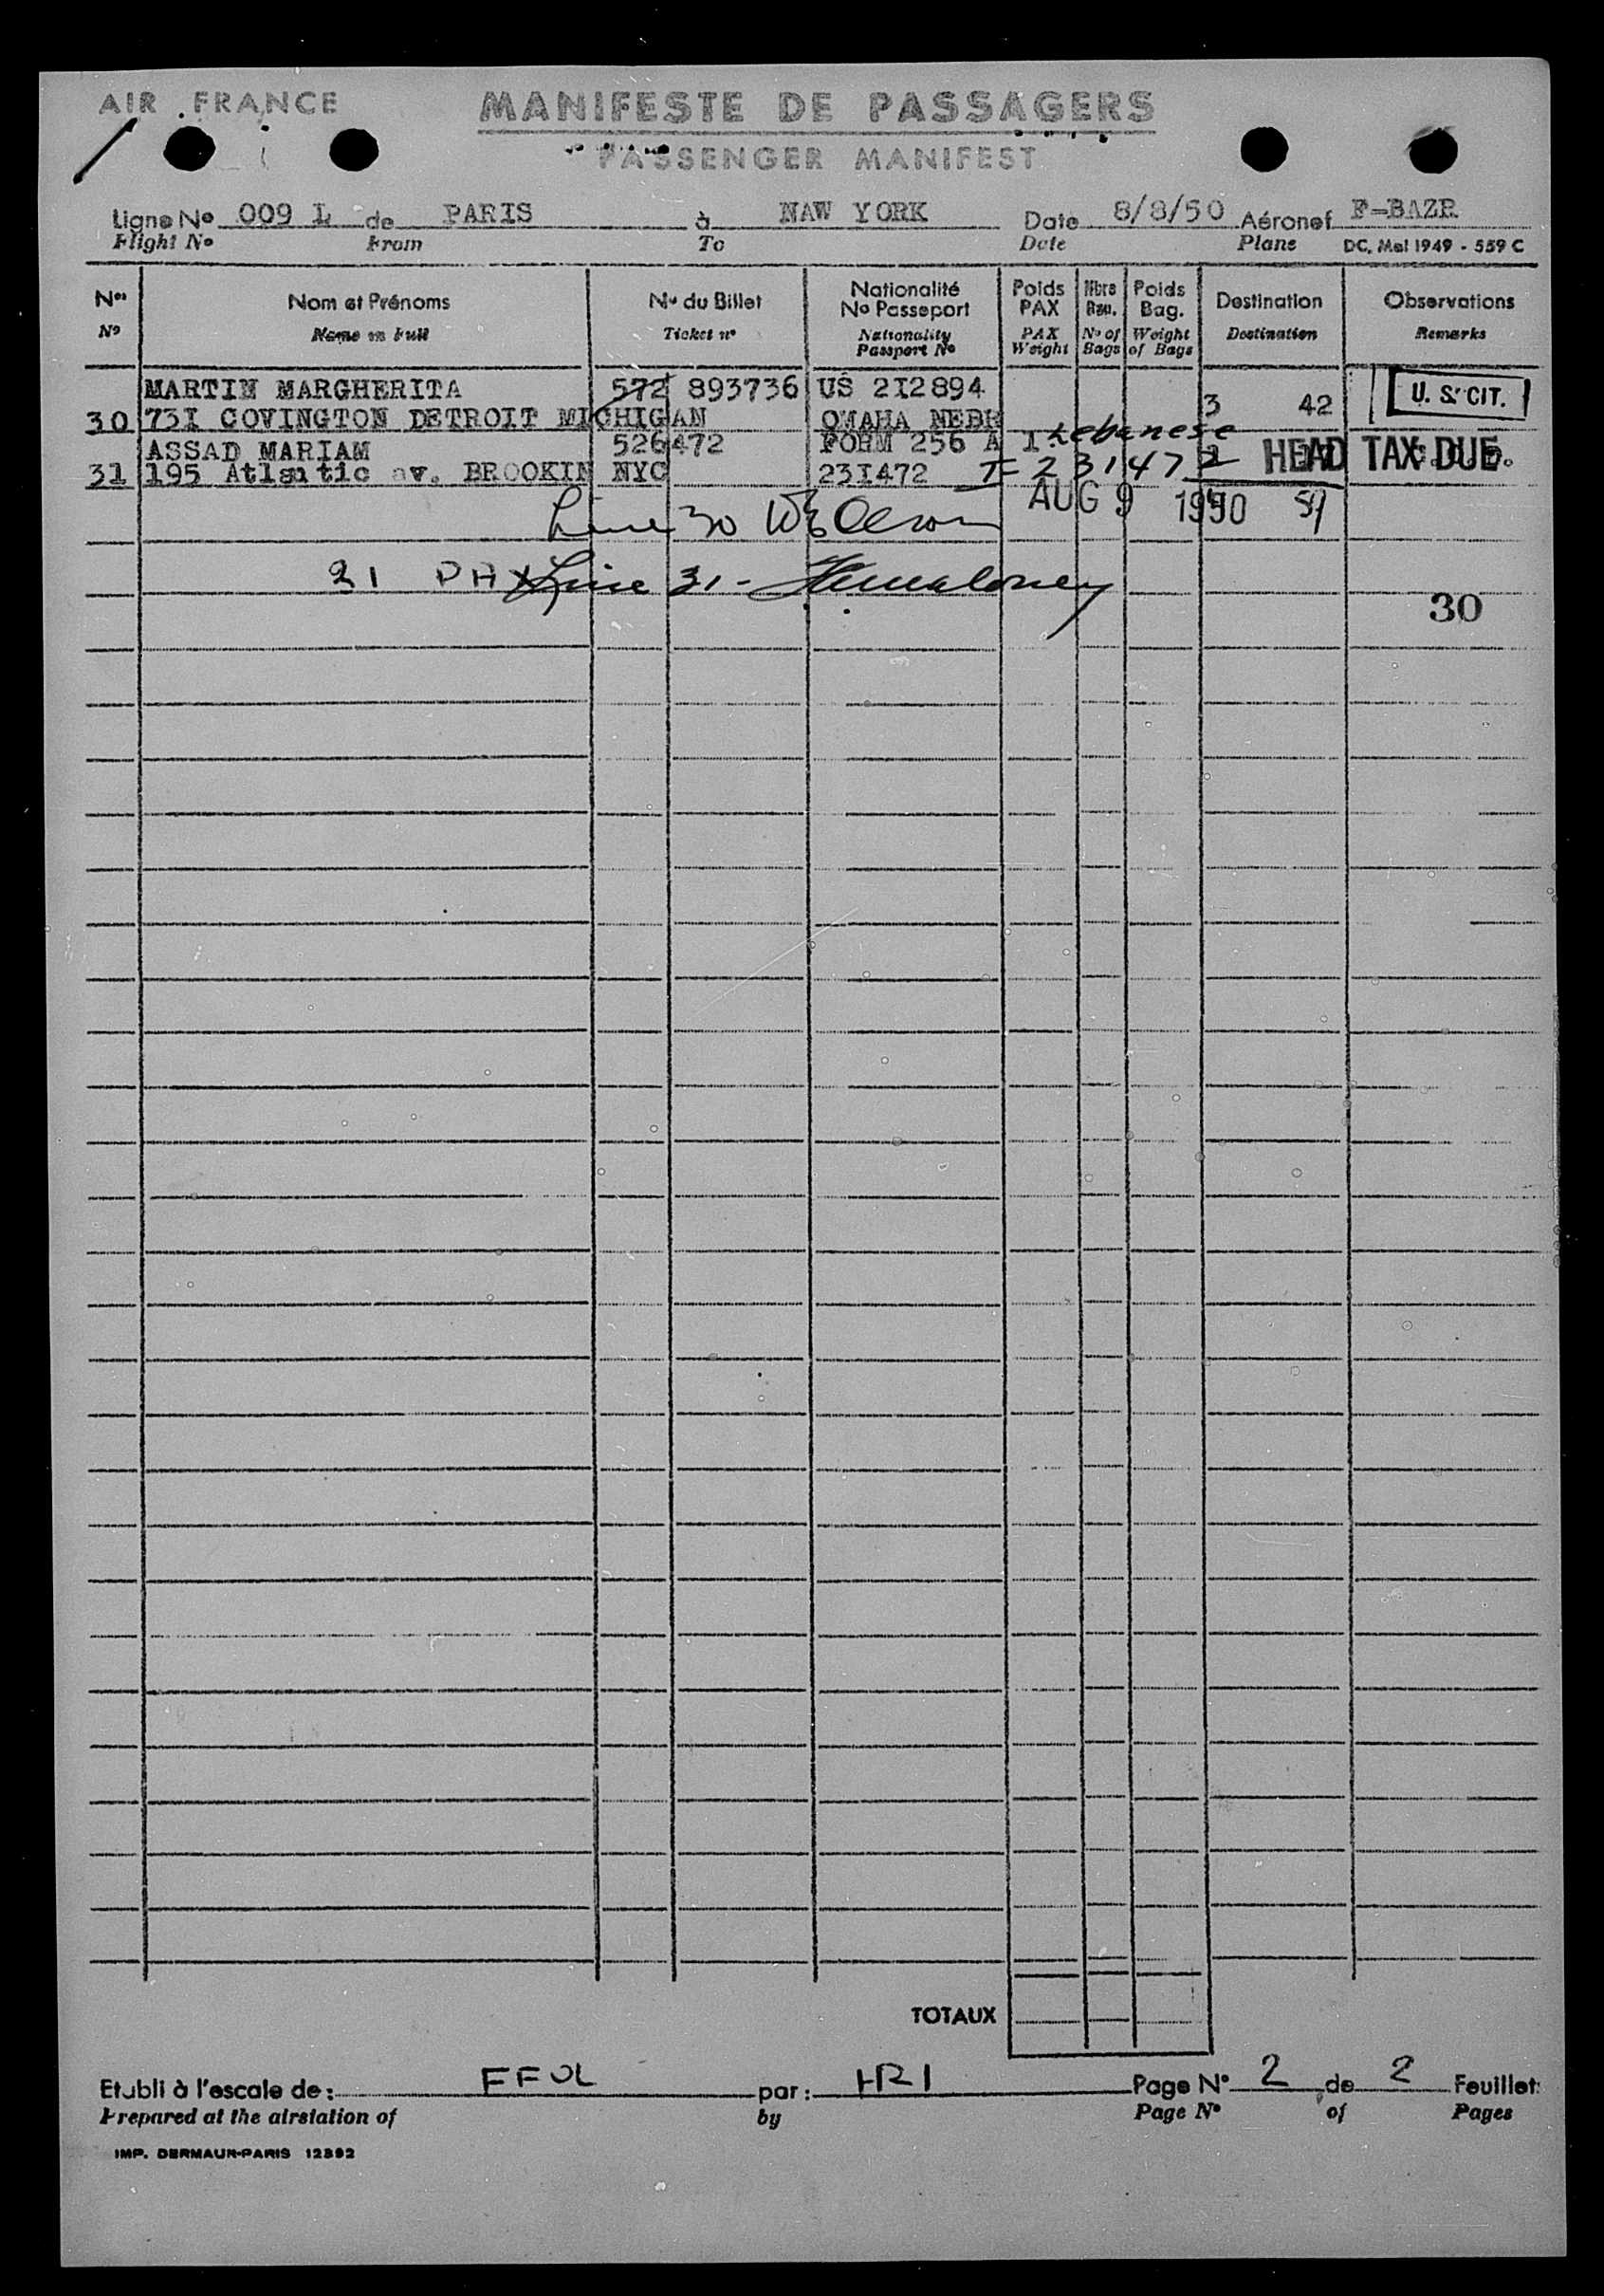 AIR FRANCE
MANIFESTE DE PASSAGERS
PASSENGER MANIFEST
Ligne No 009 L de PARIS à NAW YORK Date 8/8/50 Aéronef F-BAZR
Flight No From To Date Plane DC. Mel 1949 - 559 C
Nos Nom et Prénoms No du Billet Nationalité No Passeport Poids PAX Nbre Bag. Poids Bag. Destination Observations
No Name in Full Ticket no Nationality Passport No PAX Weight No of Bags Weight of Bags Destination Remarks
MARTIN MARGHERITA 572 893736 US 2I2894 U. S. CIT.
30 73I COVINGTON DETROIT MICHIGAN OMAHA NEBR 3 42
ASSAD MARIAM 526472 FORM 256 A I Lebanese HEAD TAX DUE
31 195 Atlantic av. BROOKIN NYC 23I472 I= 231472
AUG 9 1950
Line 30
21 PAX Line 31 -
30
TOTAUX
Etabli à l'escale de: par: HRI Page No 2 de 2 Feuillet
Prepared at the airstation of by Page No of Pages
IMP. DERMAUR-PARIS 12392